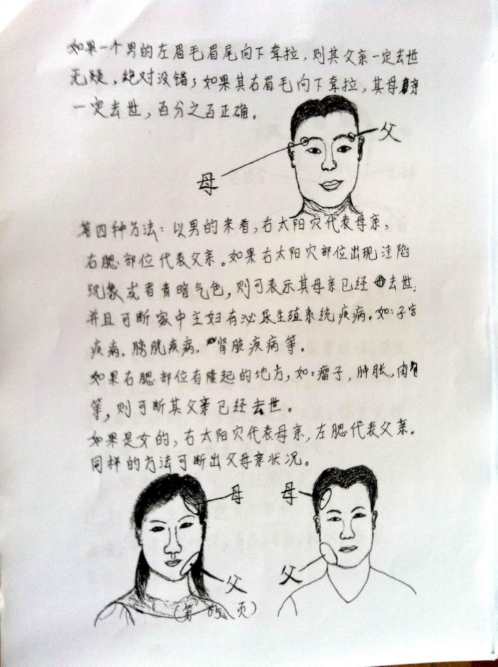 如果一个男的左眉毛眉尾向下耷拉，则其父亲一定去世
无疑，绝对没错；如果其右眉毛向下耷拉，其母亲
一定去世，百分之百正确。
父
母
第四种方法：以男的来看，右太阳穴代表母亲，
右腮部位代表父亲。如果右太阳穴部位出现洼陷
现象或者青暗气色，则可表示其母亲已经去世，
并且可断家中主妇有泌尿生殖系统疾病。如：子宫
疾病，膀胱疾病，肾脏疾病等。
如果右腮部位有隆起的地方，如：瘤子，肿胀，肉
等，则可断其父亲已经去世。
如果是女的，右太阳穴代表母亲，左腮代表父亲。
同样的方法可断出父母亲状况。
母 母
父 父
(第 页)